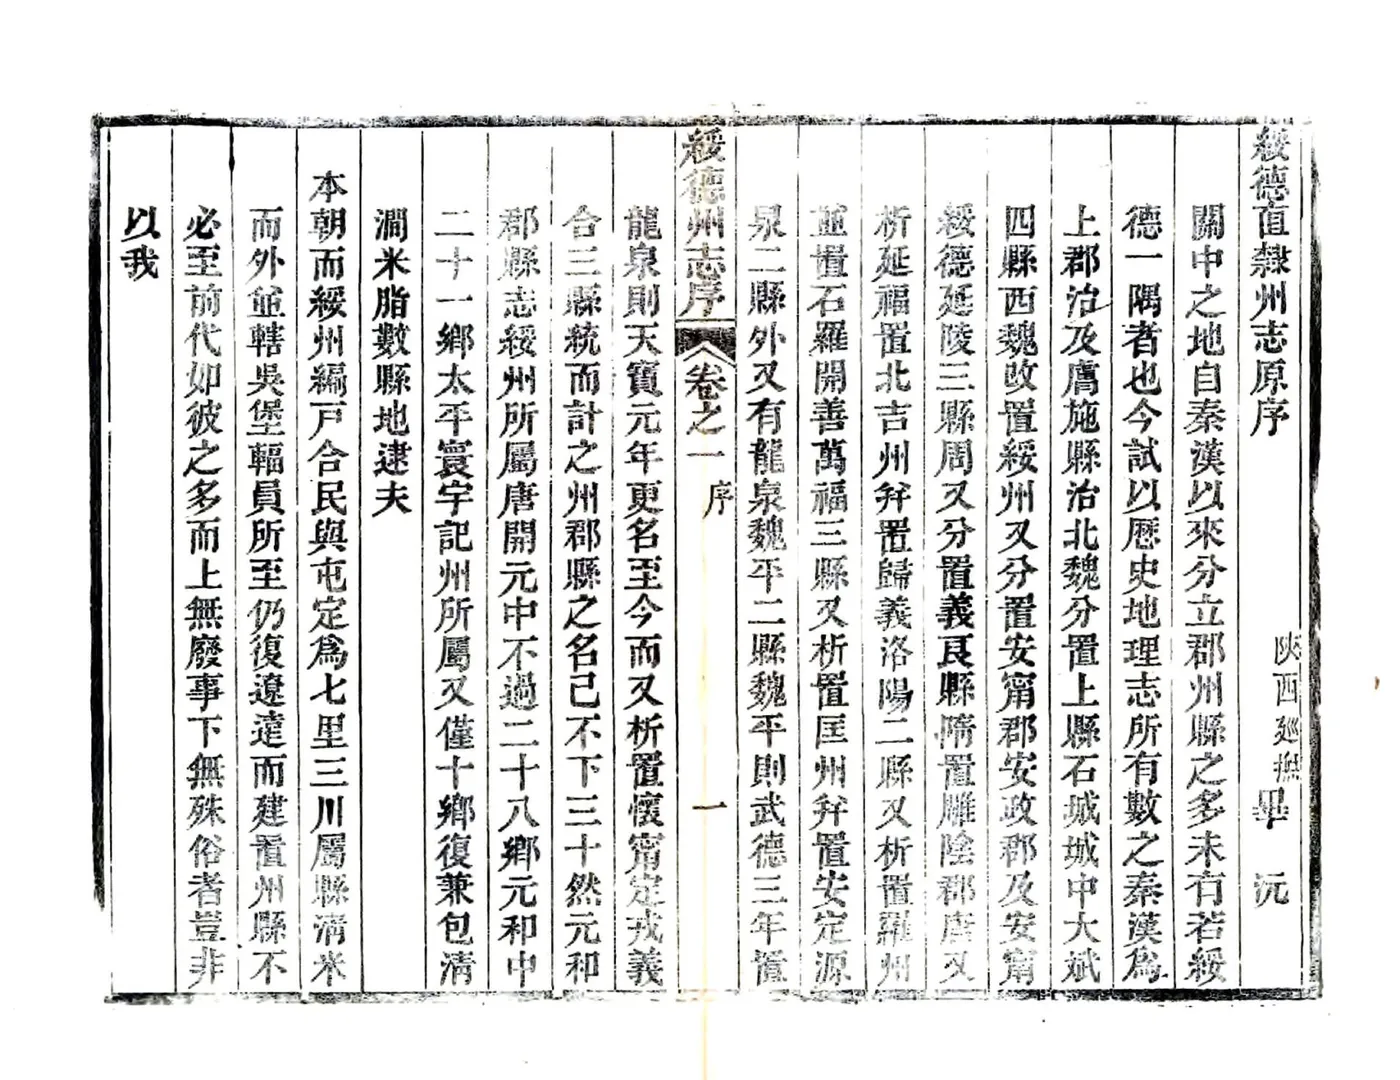 綏德直隸州志原序
陝西廵撫畢沅
關中之地自秦漢以來分立郡州縣之多未有若綏
德一隅者也今試以歷史地理志所有數之秦漢爲
上郡治及膚施縣治北魏分置上縣石城城中大斌
四縣西魏改置綏州又分置安甯郡安政郡及安甯
綏德延陵三縣周又分置義良縣隋置雕陰郡唐又
析延福置北吉州幷置歸義洛陽二縣又析置羅州
並置石羅開善萬福三縣又析置匡州幷置安定源
泉二縣外又有龍泉魏平二縣魏平則武德三年置
綏德州志序 卷之一 序 一
龍泉則天寶元年更名至今而又析置懷甯定戎義
合三縣統而計之州郡縣之名已不下三十然元和
郡縣志綏州所屬唐開元中不過二十八鄉元和中
二十一鄉太平寰宇記州所屬又僅十鄉復兼包清
澗米脂數縣地逮夫
本朝而綏州編戸合民與屯定爲七里三川屬縣淸米
而外並轄吳堡輻員所至仍復遼遠而建置州縣不
必至前代如彼之多而上無廢事下無殊俗者豈非
以我